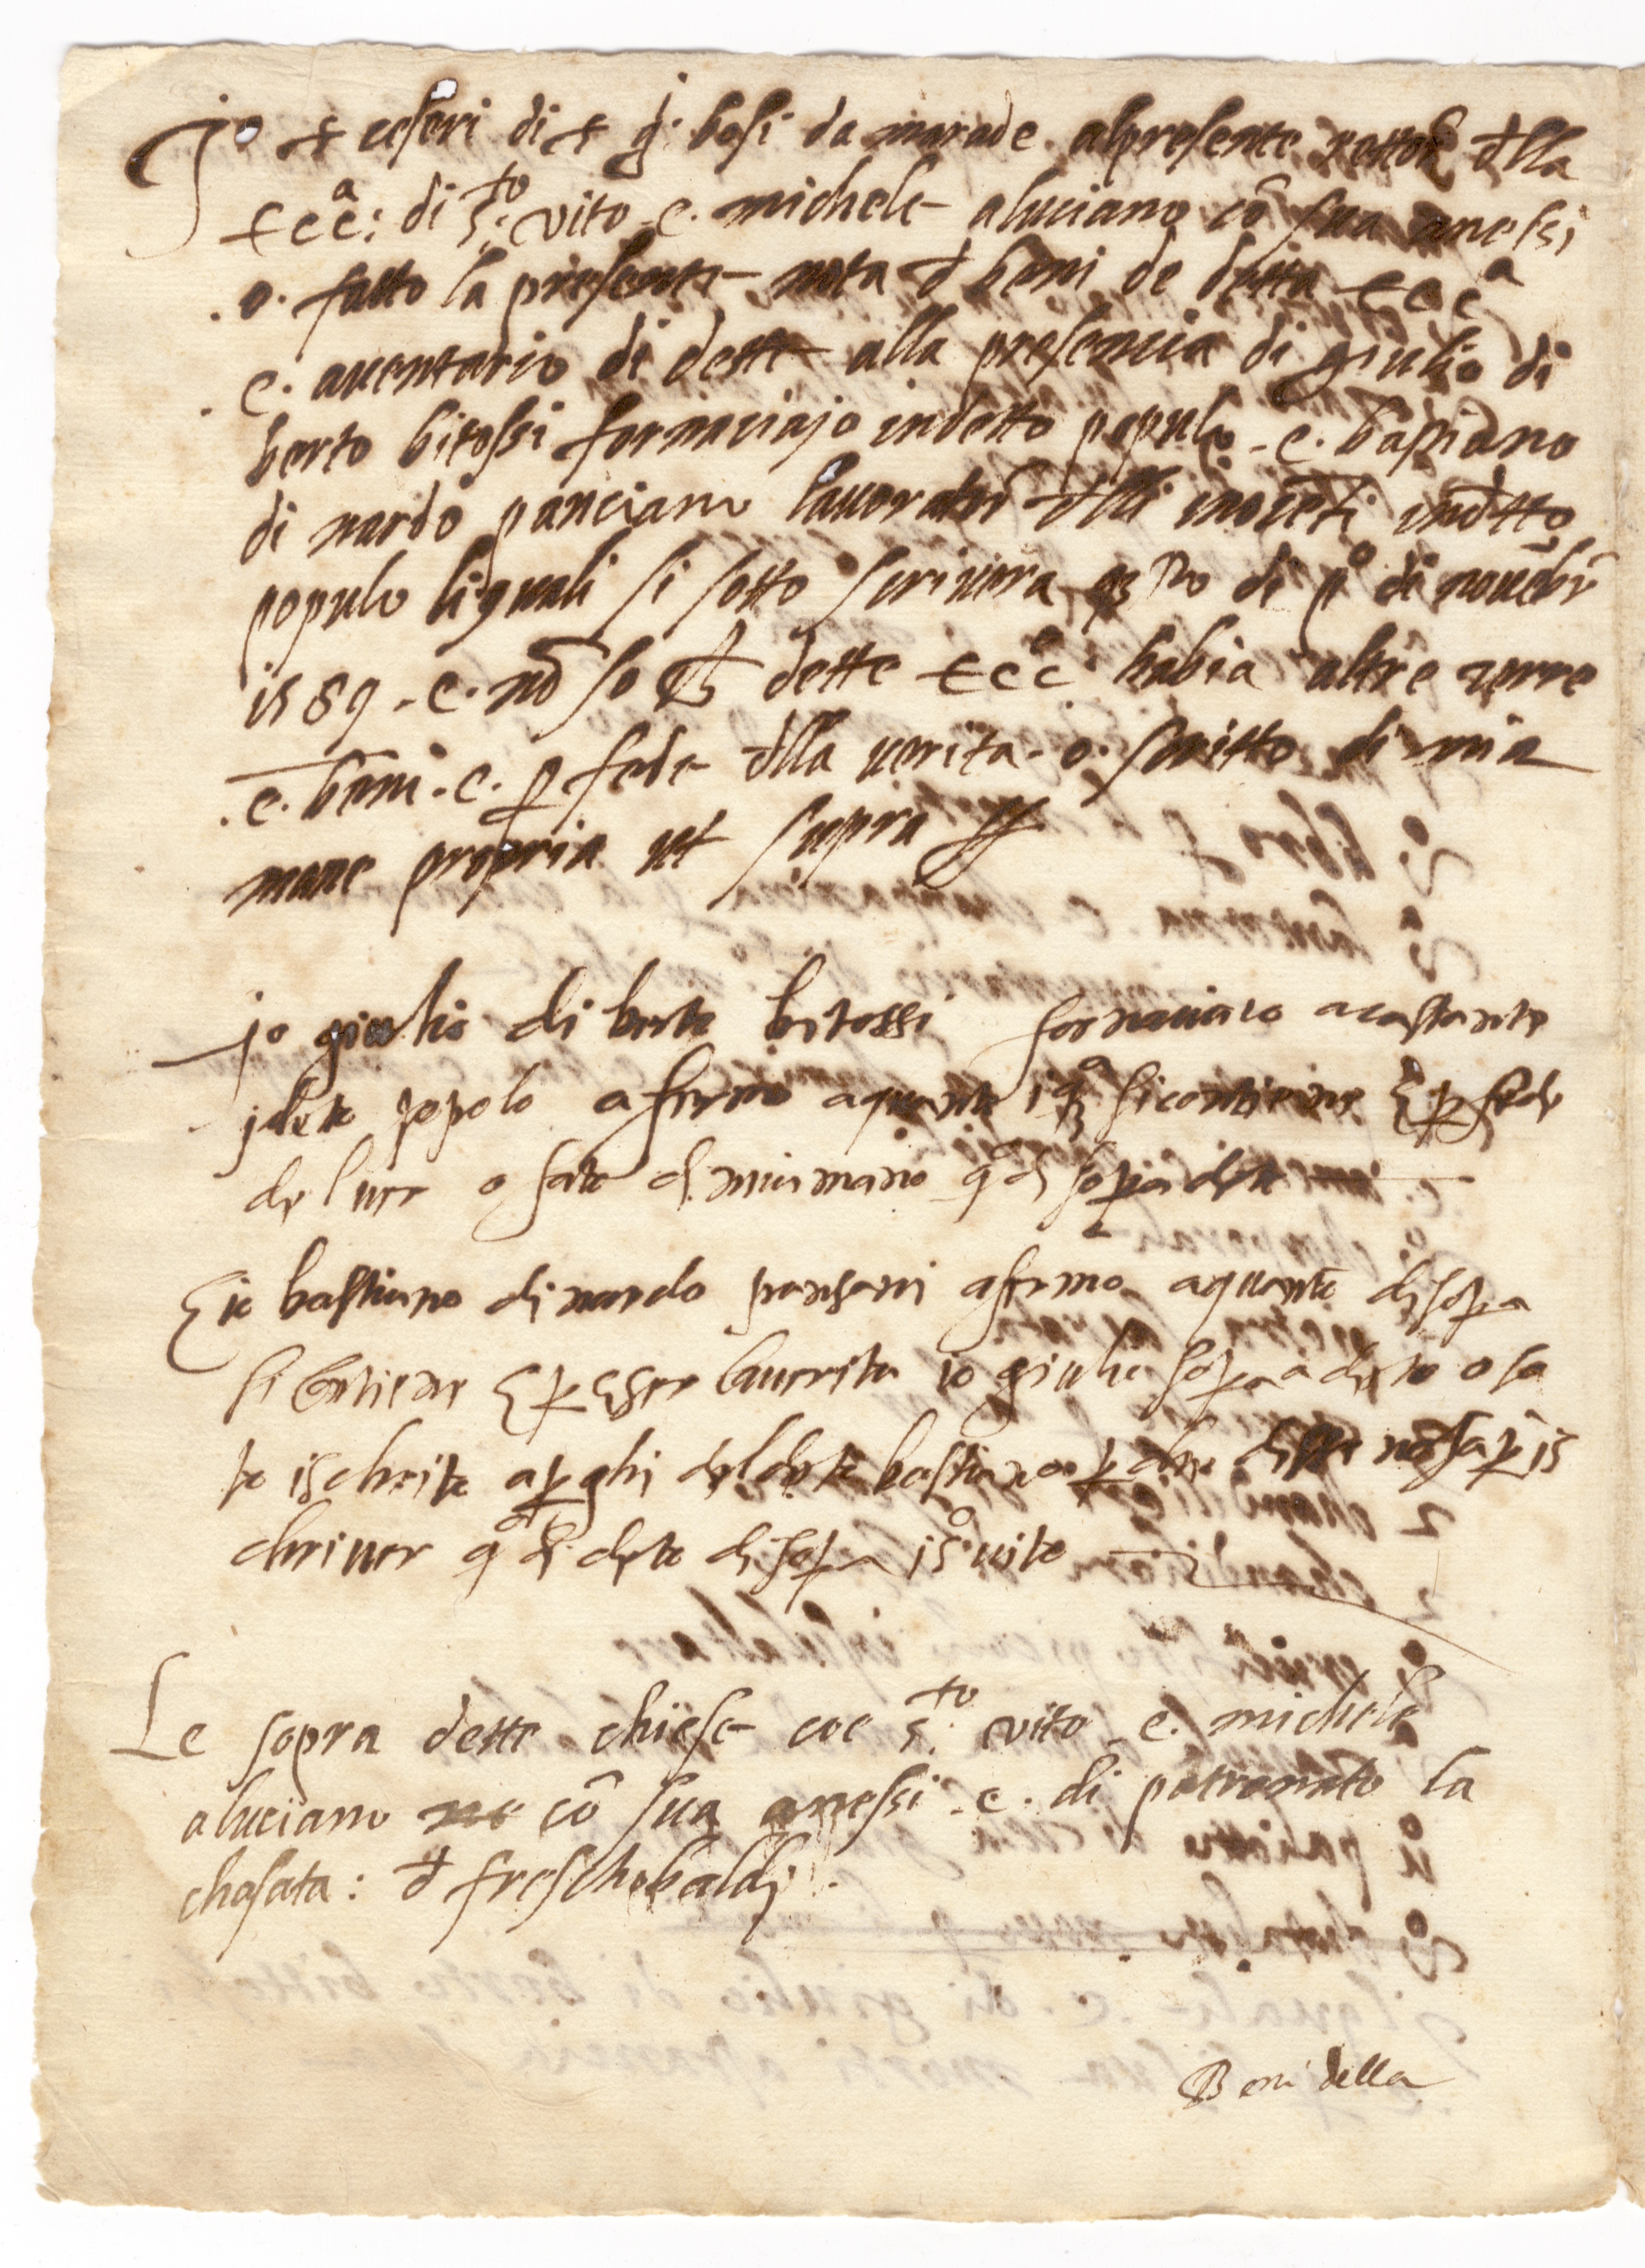 Jo ceseri di g: bosi da marade. alpresente rettor dlla
ecc.a: di s.to vito e. michele aluciano cō sua anessi
. o. fatto la presente nota d beni de detta ecc.a
. e. auentario di dette alla presencia di giulio di
berto bitossi fornaciajo indetto populo e. bastiano
di nardo panciani lauorator dlli inocēti indtto
populo liquali si sotto scriuera di p.o di nouēbr
1589. e. nō so dette ecc.a habia altre terre
. e. beni. e. p fede dlla uerita. o. scritto di mia
mane propria ut supra
jo giulio di berto bitossi fornaciaio
jdeto popolo afermo aquanto si contiene p fede
del uer o fato di mia mano di sopra deto
E io bastiano di nardo pansani afermo aquanto di sopa
si contiene p esser la uerita io giulio sopa adeto o fa
to ischrito a p ghi del deto bastiano p che disse nō sap is
chriuer deto di sopa i s.o uito
Le sopra dette chiese coe s.to vito e. michele
aluciano cō sua anessi e. di patronato la
chasata: d freschobaldj.
Beni della